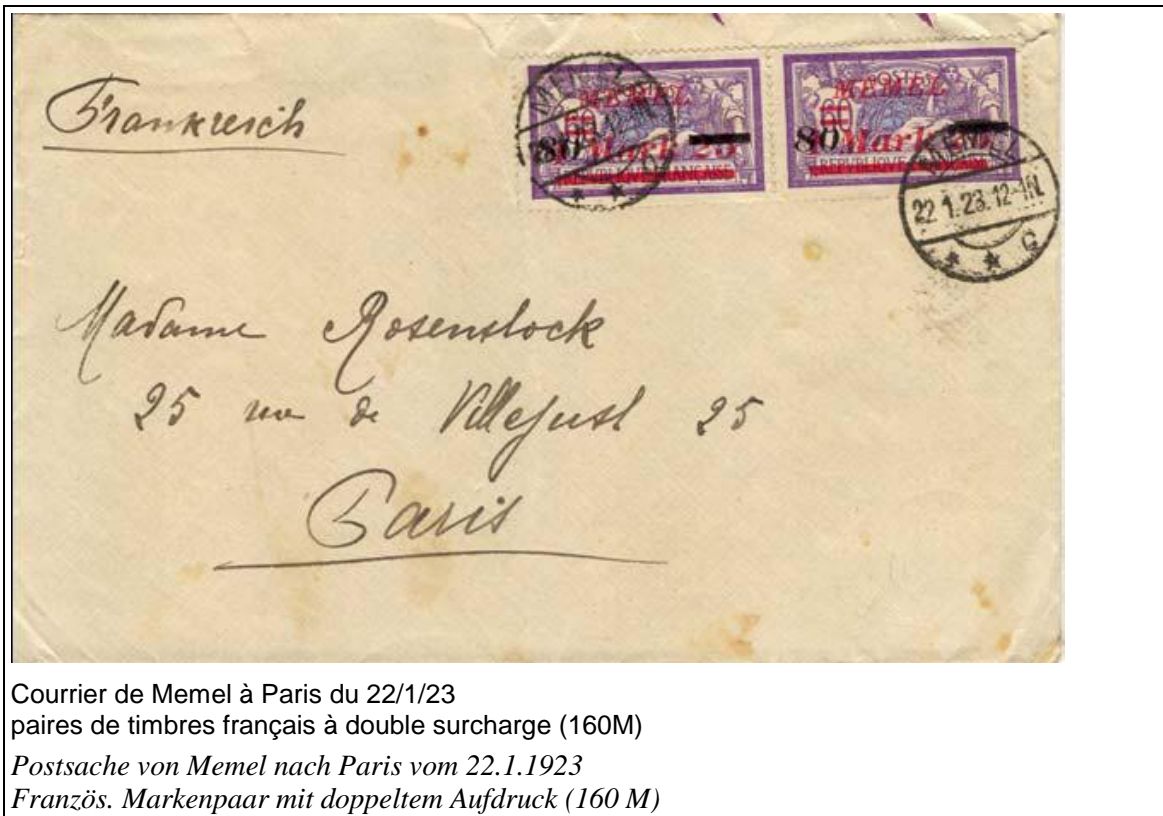 Frankreich
MEMEL
80 Mark
REPVBLIQVE FRANÇAISE
MEMEL
60
80 Mark
REPVBLIQVE FRANÇAISE
MEMEL
MEMEL
22.1.23.12-1N.
Madame Rosenstock
25 rue de Villejust 25
Paris
Courrier de Memel à Paris du 22/1/23
paires de timbres français à double surcharge (160M)
Postsache von Memel nach Paris vom 22.1.1923
Französ. Markenpaar mit doppeltem Aufdruck (160 M)